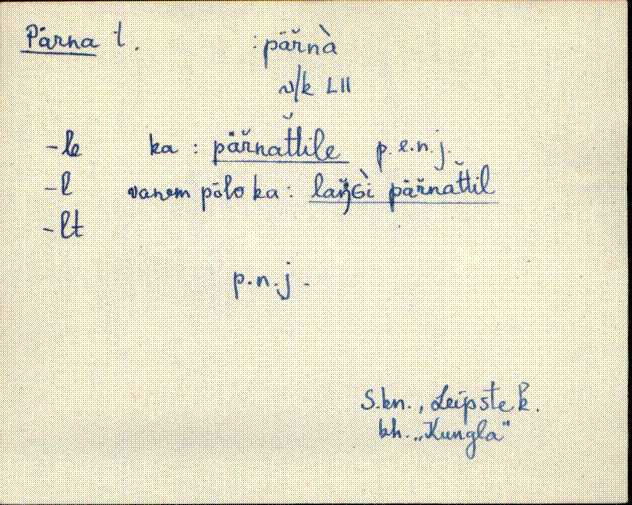 Pärna t. :päřnà
v/k LII
-le ka : päřnat̆tile p.e.n.j.
-l vanem põlo ka: laŋ̆Gì päřnat̆til
-lt
p.n.j.
S.kn., Leipste k.
kh. „Kungla"